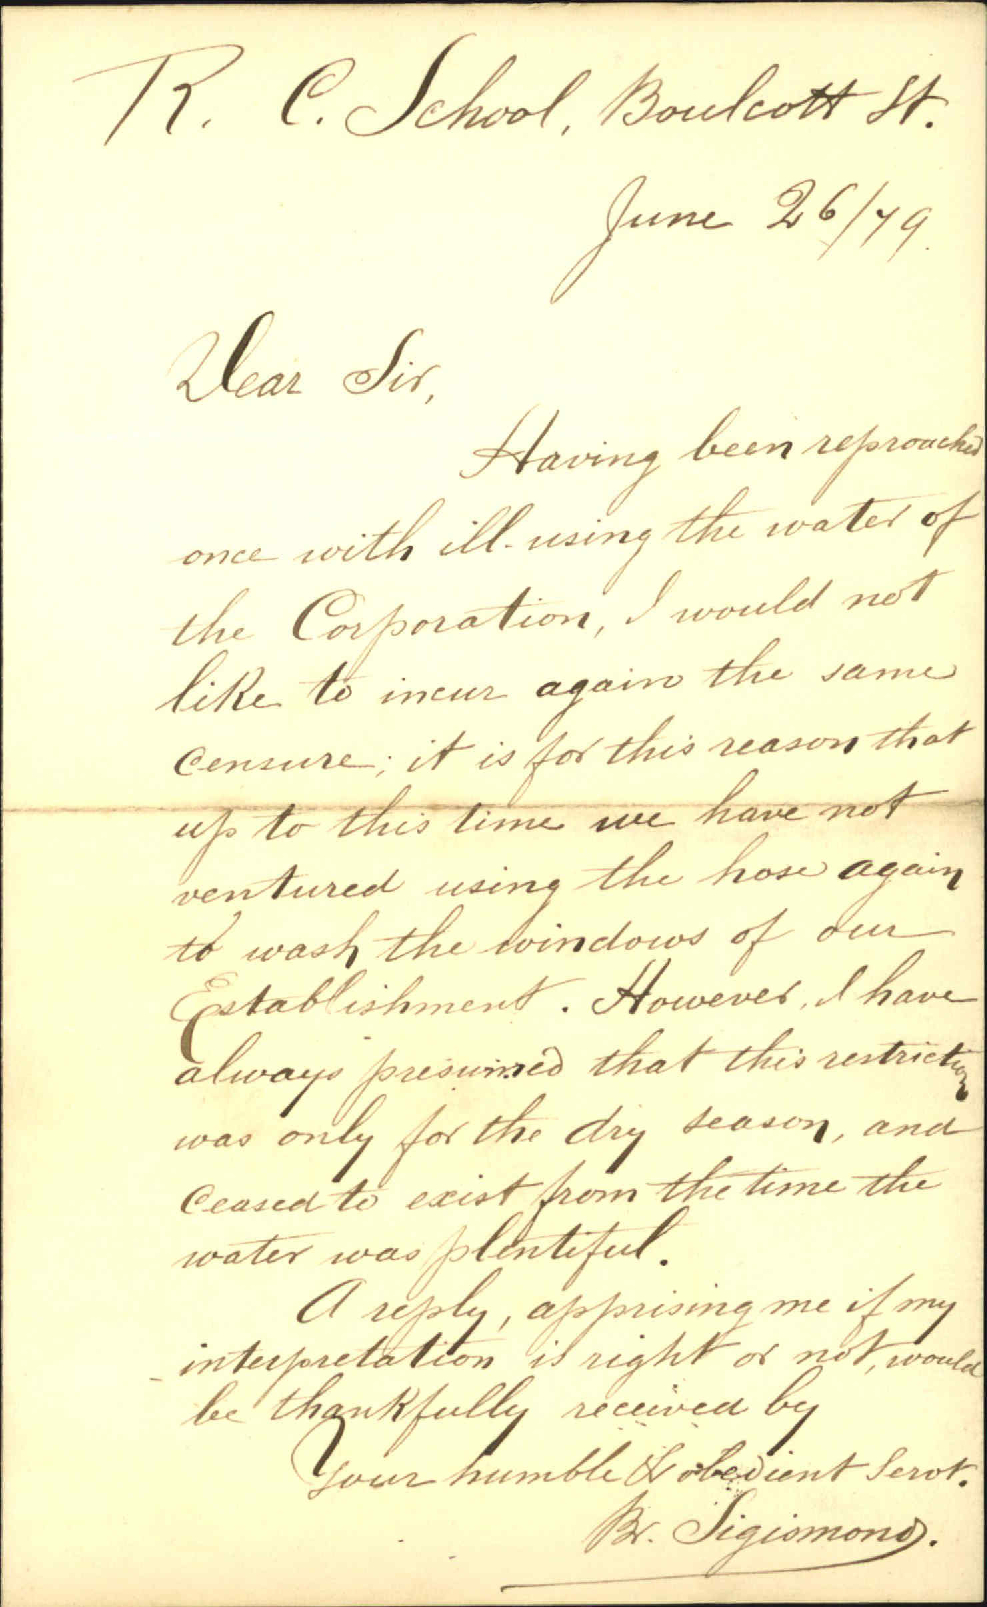 R. C. School, Boulcott St.
June 26/79.
Dear Sir,
Having been reproached
once with ill-using the water of
the Corporation, I would not
like to incur again the same
censure; it is for this reason that
up to this time we have not
ventured using the hose again
to wash the windows of our
Establishment. However, I have
always presumed that this restriction
was only for the dry season, and
ceased to exist from the time the
water was plentiful.
A reply, apprising me if my
interpretation is right or not, would
be thankfully received by
Your humble & obedient Servt.
Br. Sigismond.